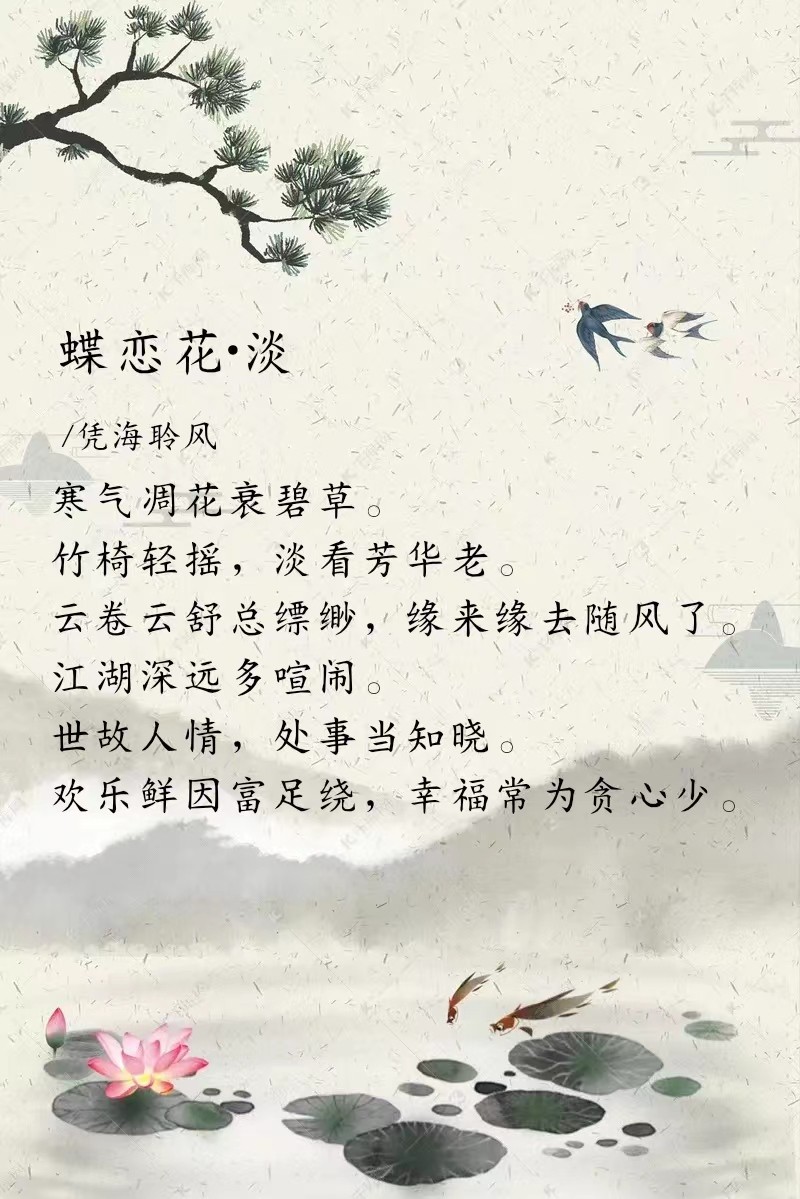 蝶恋花•淡
/凭海聆风
寒气凋花衰碧草。
竹椅轻摇，淡看芳华老。
云卷云舒总缥缈，缘来缘去随风了。
江湖深远多喧闹。
世故人情，处事当知晓。
欢乐鲜因富足绕，幸福常为贪心少。